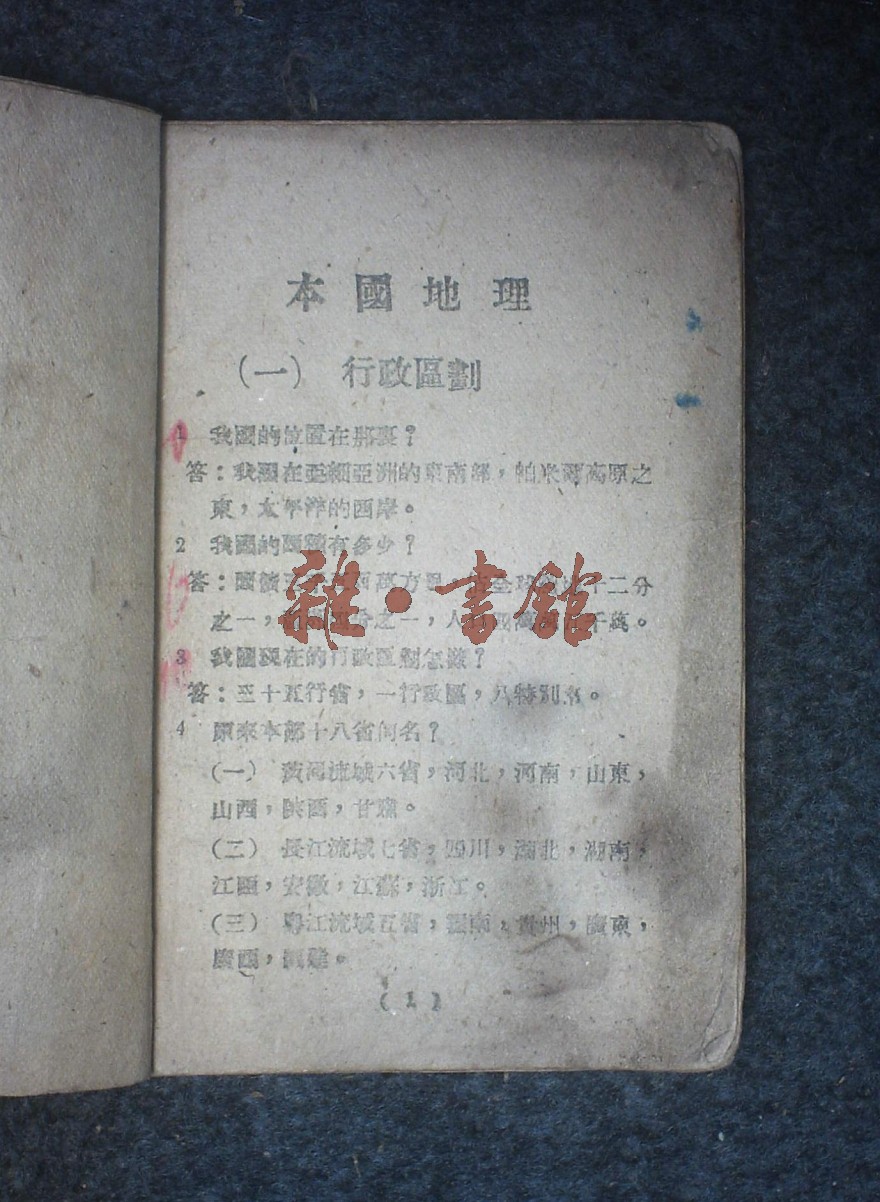 本國地理
（一） 行政區劃
1 我國的位置在那裏？
答：我國在亞細亞洲的東南部，帕米爾高原之
東，太平洋的西岸。
2 我國的面積有多少？
答：面積 萬方里 全 十二分
之一， 分之一，人 四萬 千萬。
雜·書館
3 我國現在的行政區劃怎樣？
答：三十五行省，一行政區，八特別市。
4 原來本部十八省何名？
（一） 黃河流域六省，河北，河南，山東，
山西，陝西，甘肅。
（二） 長江流域七省，四川，湖北，湖南，
江西，安徽，江蘇，浙江。
（三） 粵江流域五省，雲南，貴州，廣東，
廣西，福建。
(1)